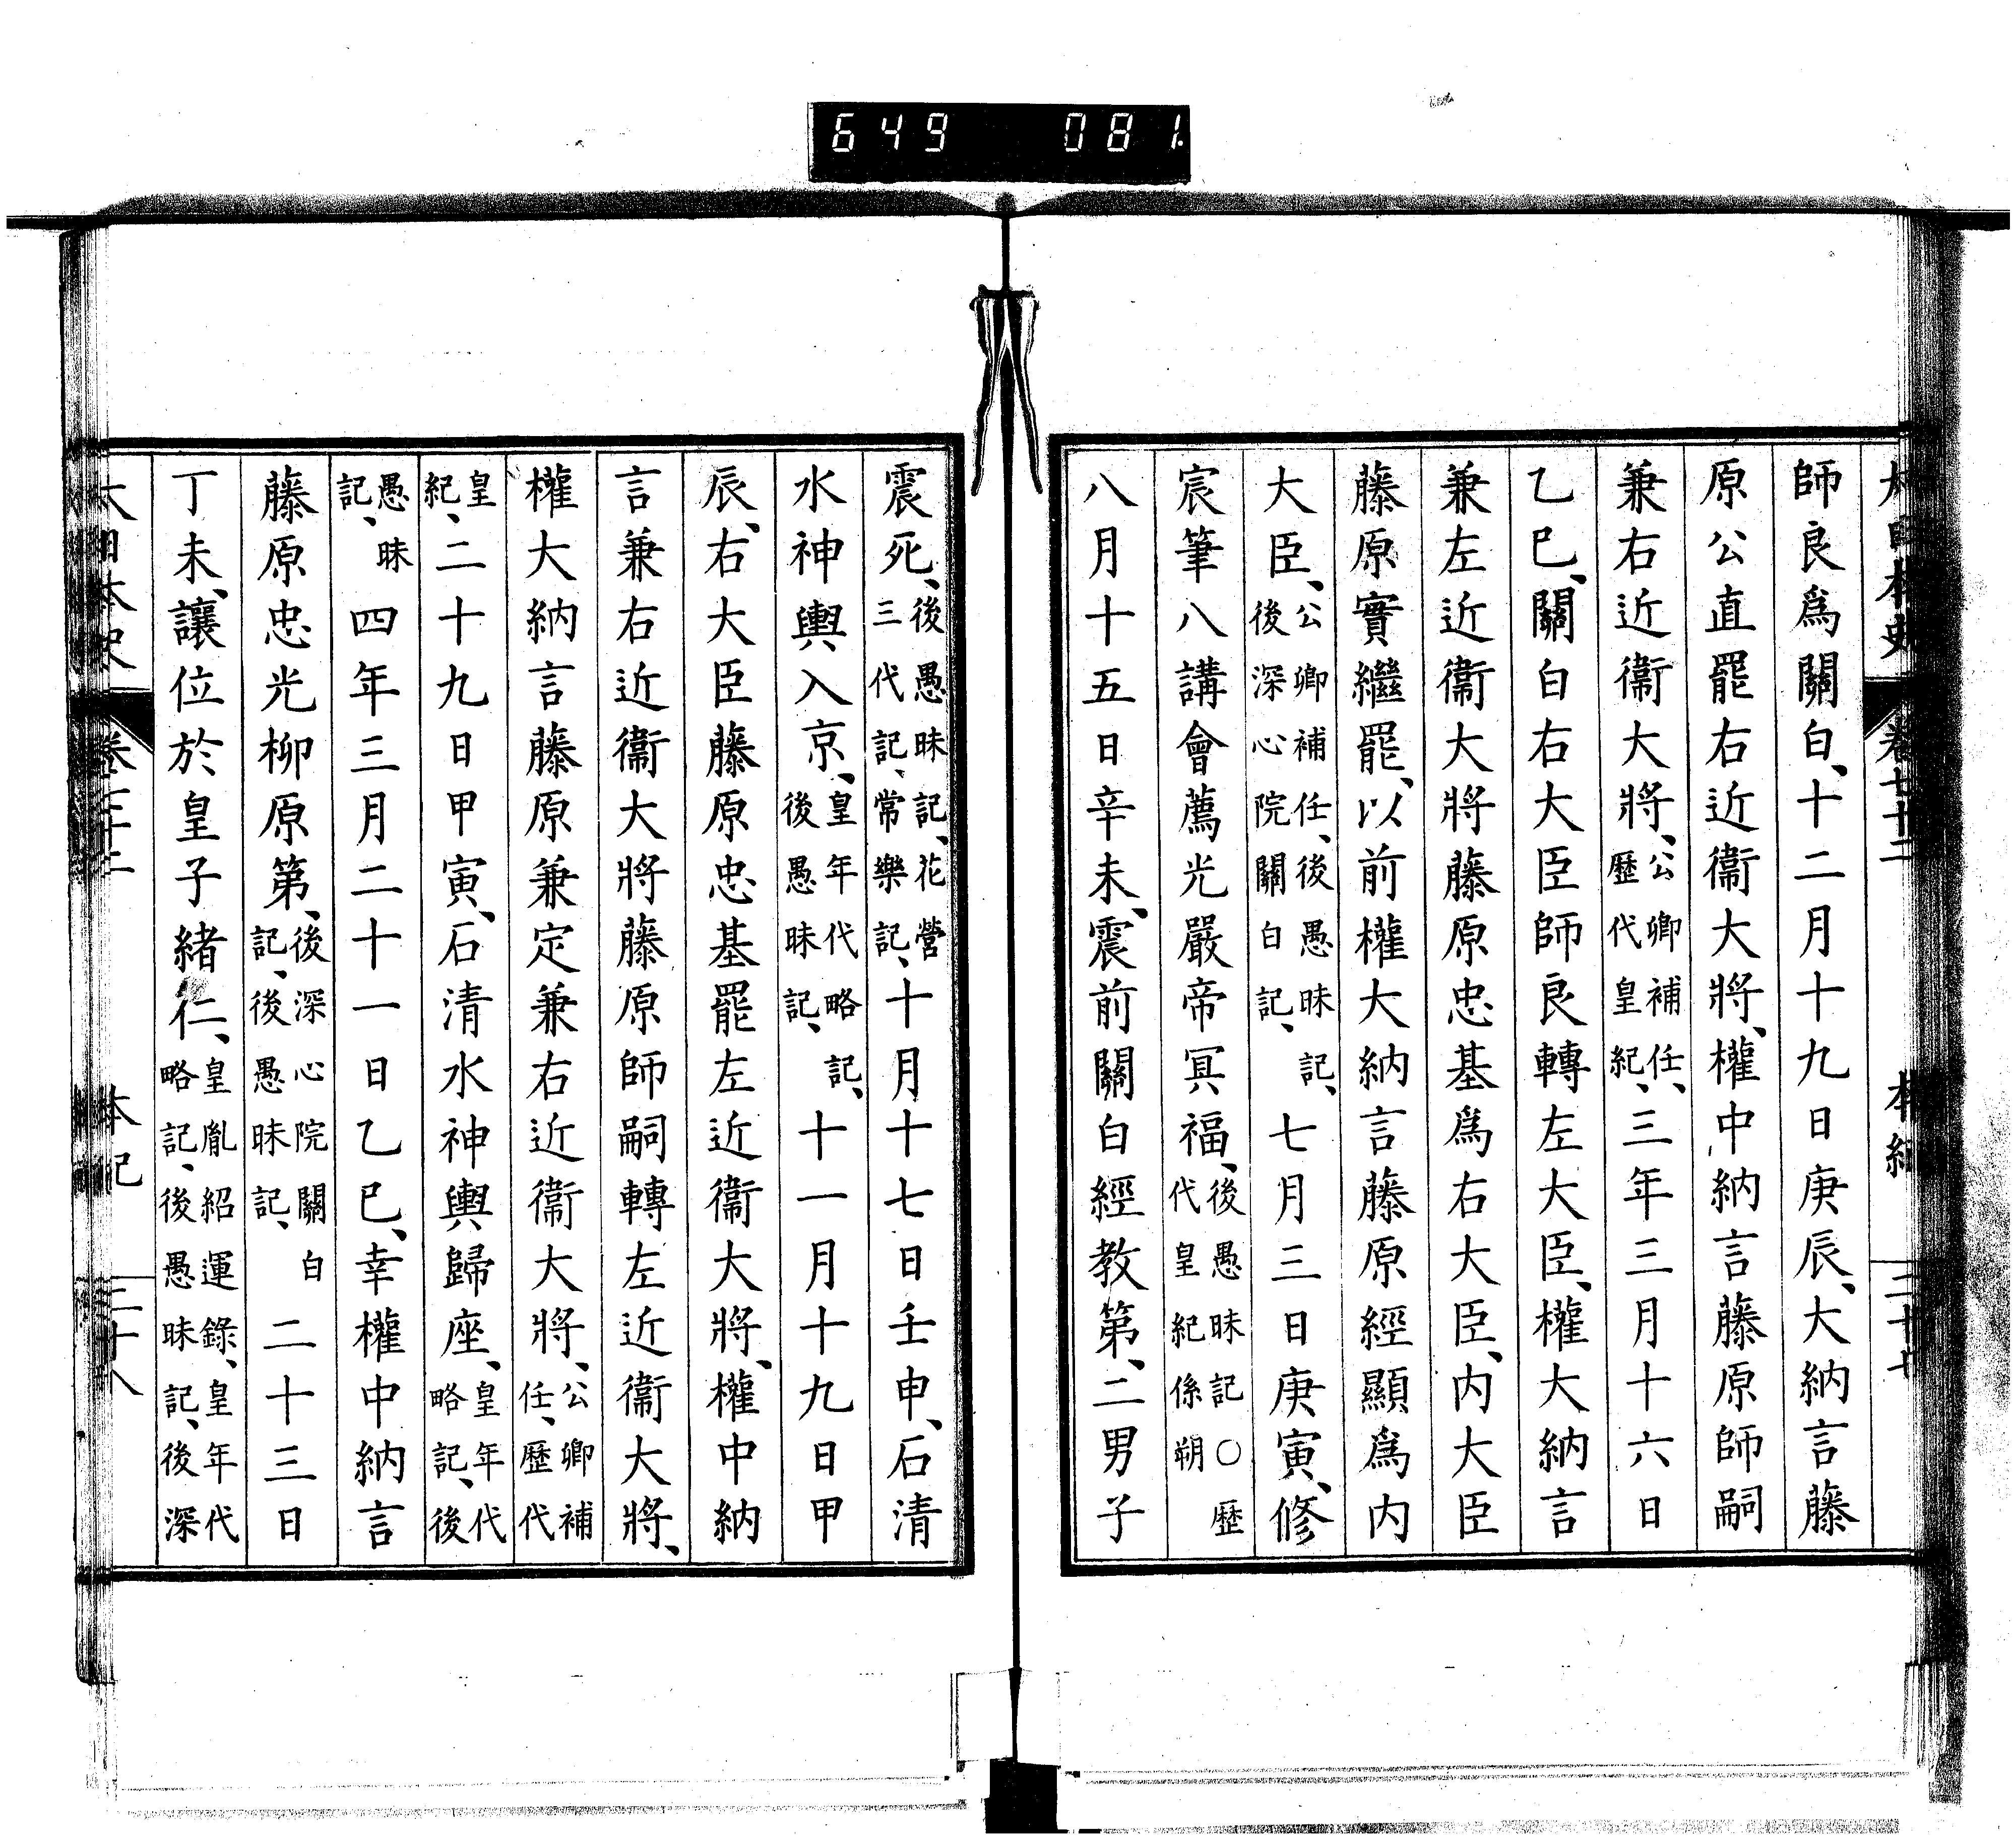 649 081
大日本史 卷七十二 本紀 三十七
師良爲關白、十二月十九日庚辰、大納言藤
原公直罷右近衞大將、權中納言藤原師嗣
兼右近衞大將、公卿補任、歷代皇紀、三年三月十六日
乙巳、關白右大臣師良轉左大臣、權大納言
兼左近衞大將藤原忠基爲右大臣、内大臣
藤原實繼罷、以前權大納言藤原經顯爲内
大臣、公卿補任、後愚昧記、後深心院關白記、七月三日庚寅、修
宸筆八講會薦光嚴帝冥福、後愚昧記○歷代皇紀係朔
八月十五日辛未、震前關白經教第、二男子
震死、後愚昧記、花營三代記、常樂記、十月十七日壬申、石清
水神輿入京、皇年代略記、後愚昧記、十一月十九日甲
辰、右大臣藤原忠基罷左近衞大將、權中納
言兼右近衞大將藤原師嗣轉左近衞大將、
權大納言藤原兼定兼右近衞大將、公卿補任、歷代
皇紀、二十九日甲寅、石清水神輿歸座、皇年代略記、後
愚昧記、四年三月二十一日乙巳、幸權中納言
藤原忠光柳原第、後深心院關白記、後愚昧記、二十三日
丁未、讓位於皇子緒仁、皇胤紹運錄、皇年代略記、後愚昧記、後深
大日本史 卷七十二 本紀 三十八